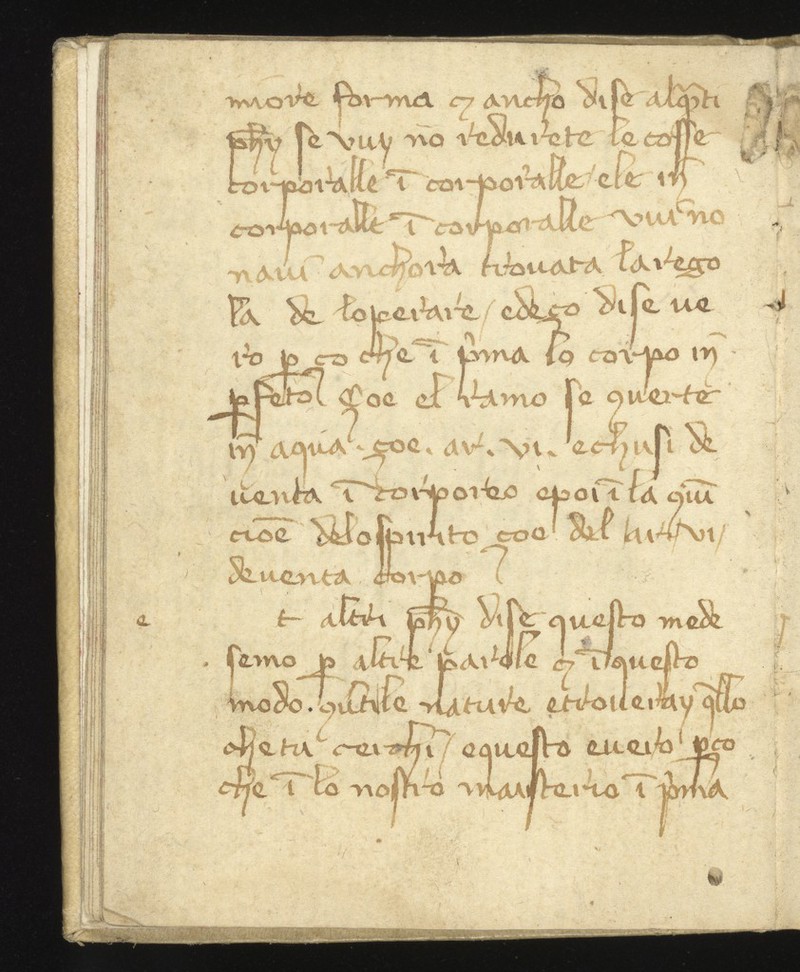 miore forma ⁊ ancho dise alqⁿti
phỹ se vuy nō redurete le cosse
corporalle ī corporalle / ele in̄
corporalle ī corporalle vui no
naui anchora trouata la rego
la de loperare / edeço dise ue
ro ꝑ ço che ī p̃ma lo corpo in̄
ꝑfeto çoe el ramo se ꝯuerte
in̄ aqua · çoe · ar · vi · echusi de
uenta ī corporeo epoi ī la ꝯiū
cioē delo spirito çoe del / ar / vi /
deuenta corpo
e t altri phỹ dise questo mede
semo ꝑ altre parole ⁊ ī questo
modo · ꝯūtile nature etroueray q̃llo
che tu cerchi / equesto euero ꝑço
che ī lo nostro maisterio ī p̃ma